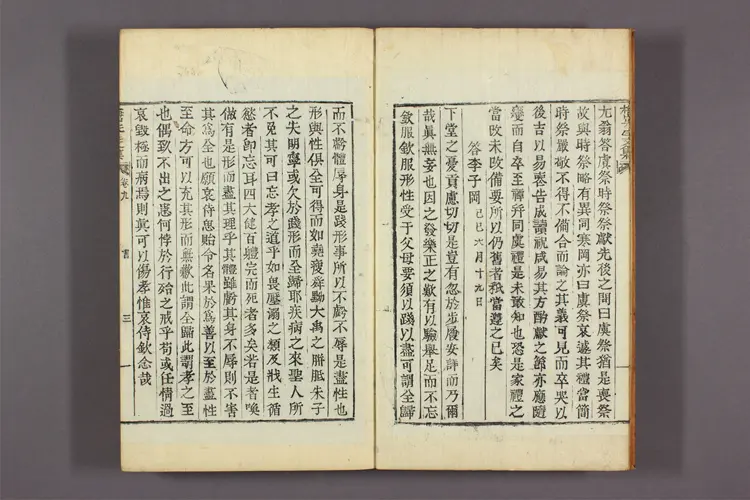 尤翁答虞祭時祭祭獻先後之問曰虞祭猶是喪祭
故與時祭略有異同寒岡亦曰虞祭哀遽其禮當簡
時祭嚴敬不得不備合而論之其義可見而卒哭以
後吉以易喪告成讀祝咸易其方酌獻之節亦應隨
變而自卒至禫幷同虞禮是未敢知也恐是家禮之
當改未改備要所以仍舊者秪當遵之已矣
答李子岡 己巳六月十九日
下堂之憂貢慮切切是豈有忽於步履安詳而乃爾
哉眞無妄也因之發樂正之歎有以驗擧足而不忘
欽服欽服形性受于父母要須以踐以盡可謂全歸
而不虧體辱身是踐形事所以不虧不辱是盡性也
形與性俱全可得而如堯瘦舜黝大禹之胼胝朱子
之失明寧或欠於踐形而全歸耶疾病之來聖人所
不免其可曰忘孝之道乎如畏壓溺之類及戕生循
慾者卽忘耳四大健百軆完而死者多矣若是者喚
做有是形而盡其理乎其體雖虧其身不辱則不害
其爲全也願哀侍思貽令名果於爲善以至於盡性
至命方可以充其形而無歉此謂全歸此謂孝之至
也偶致不出之愳何悖於行殆之戒乎苟或任情過
哀毁極而病焉則眞可以傷孝惟哀侍欽念哉
卷九
書
三